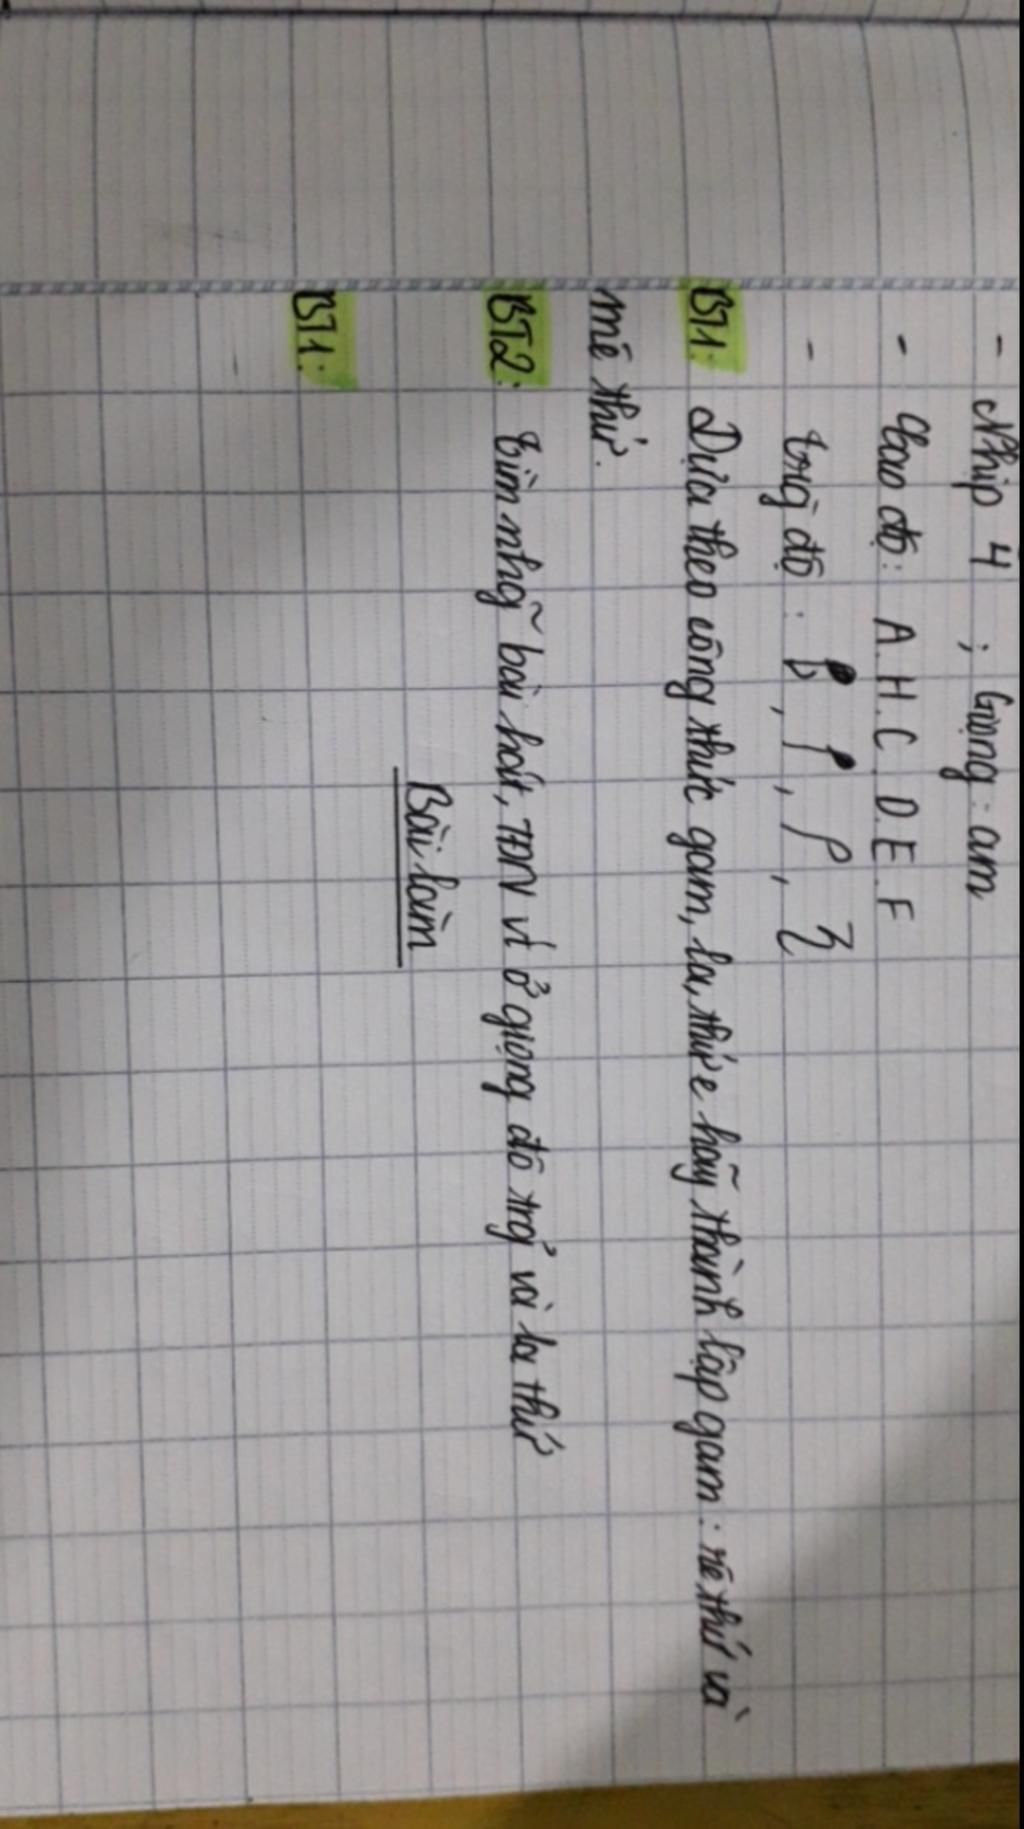 - Nhịp 4 ; Giọng: am
- Cao độ: A.H.C.D.E.F
- trg độ: , , ,
BT1: Dựa theo công thức gam, la, thứ e hãy thành lập gam: rê thứ và
mê thứ.
BT2: tìm những bài hát, TĐN vt ở giọng đô trg và la thứ
Bài làm
BT1: